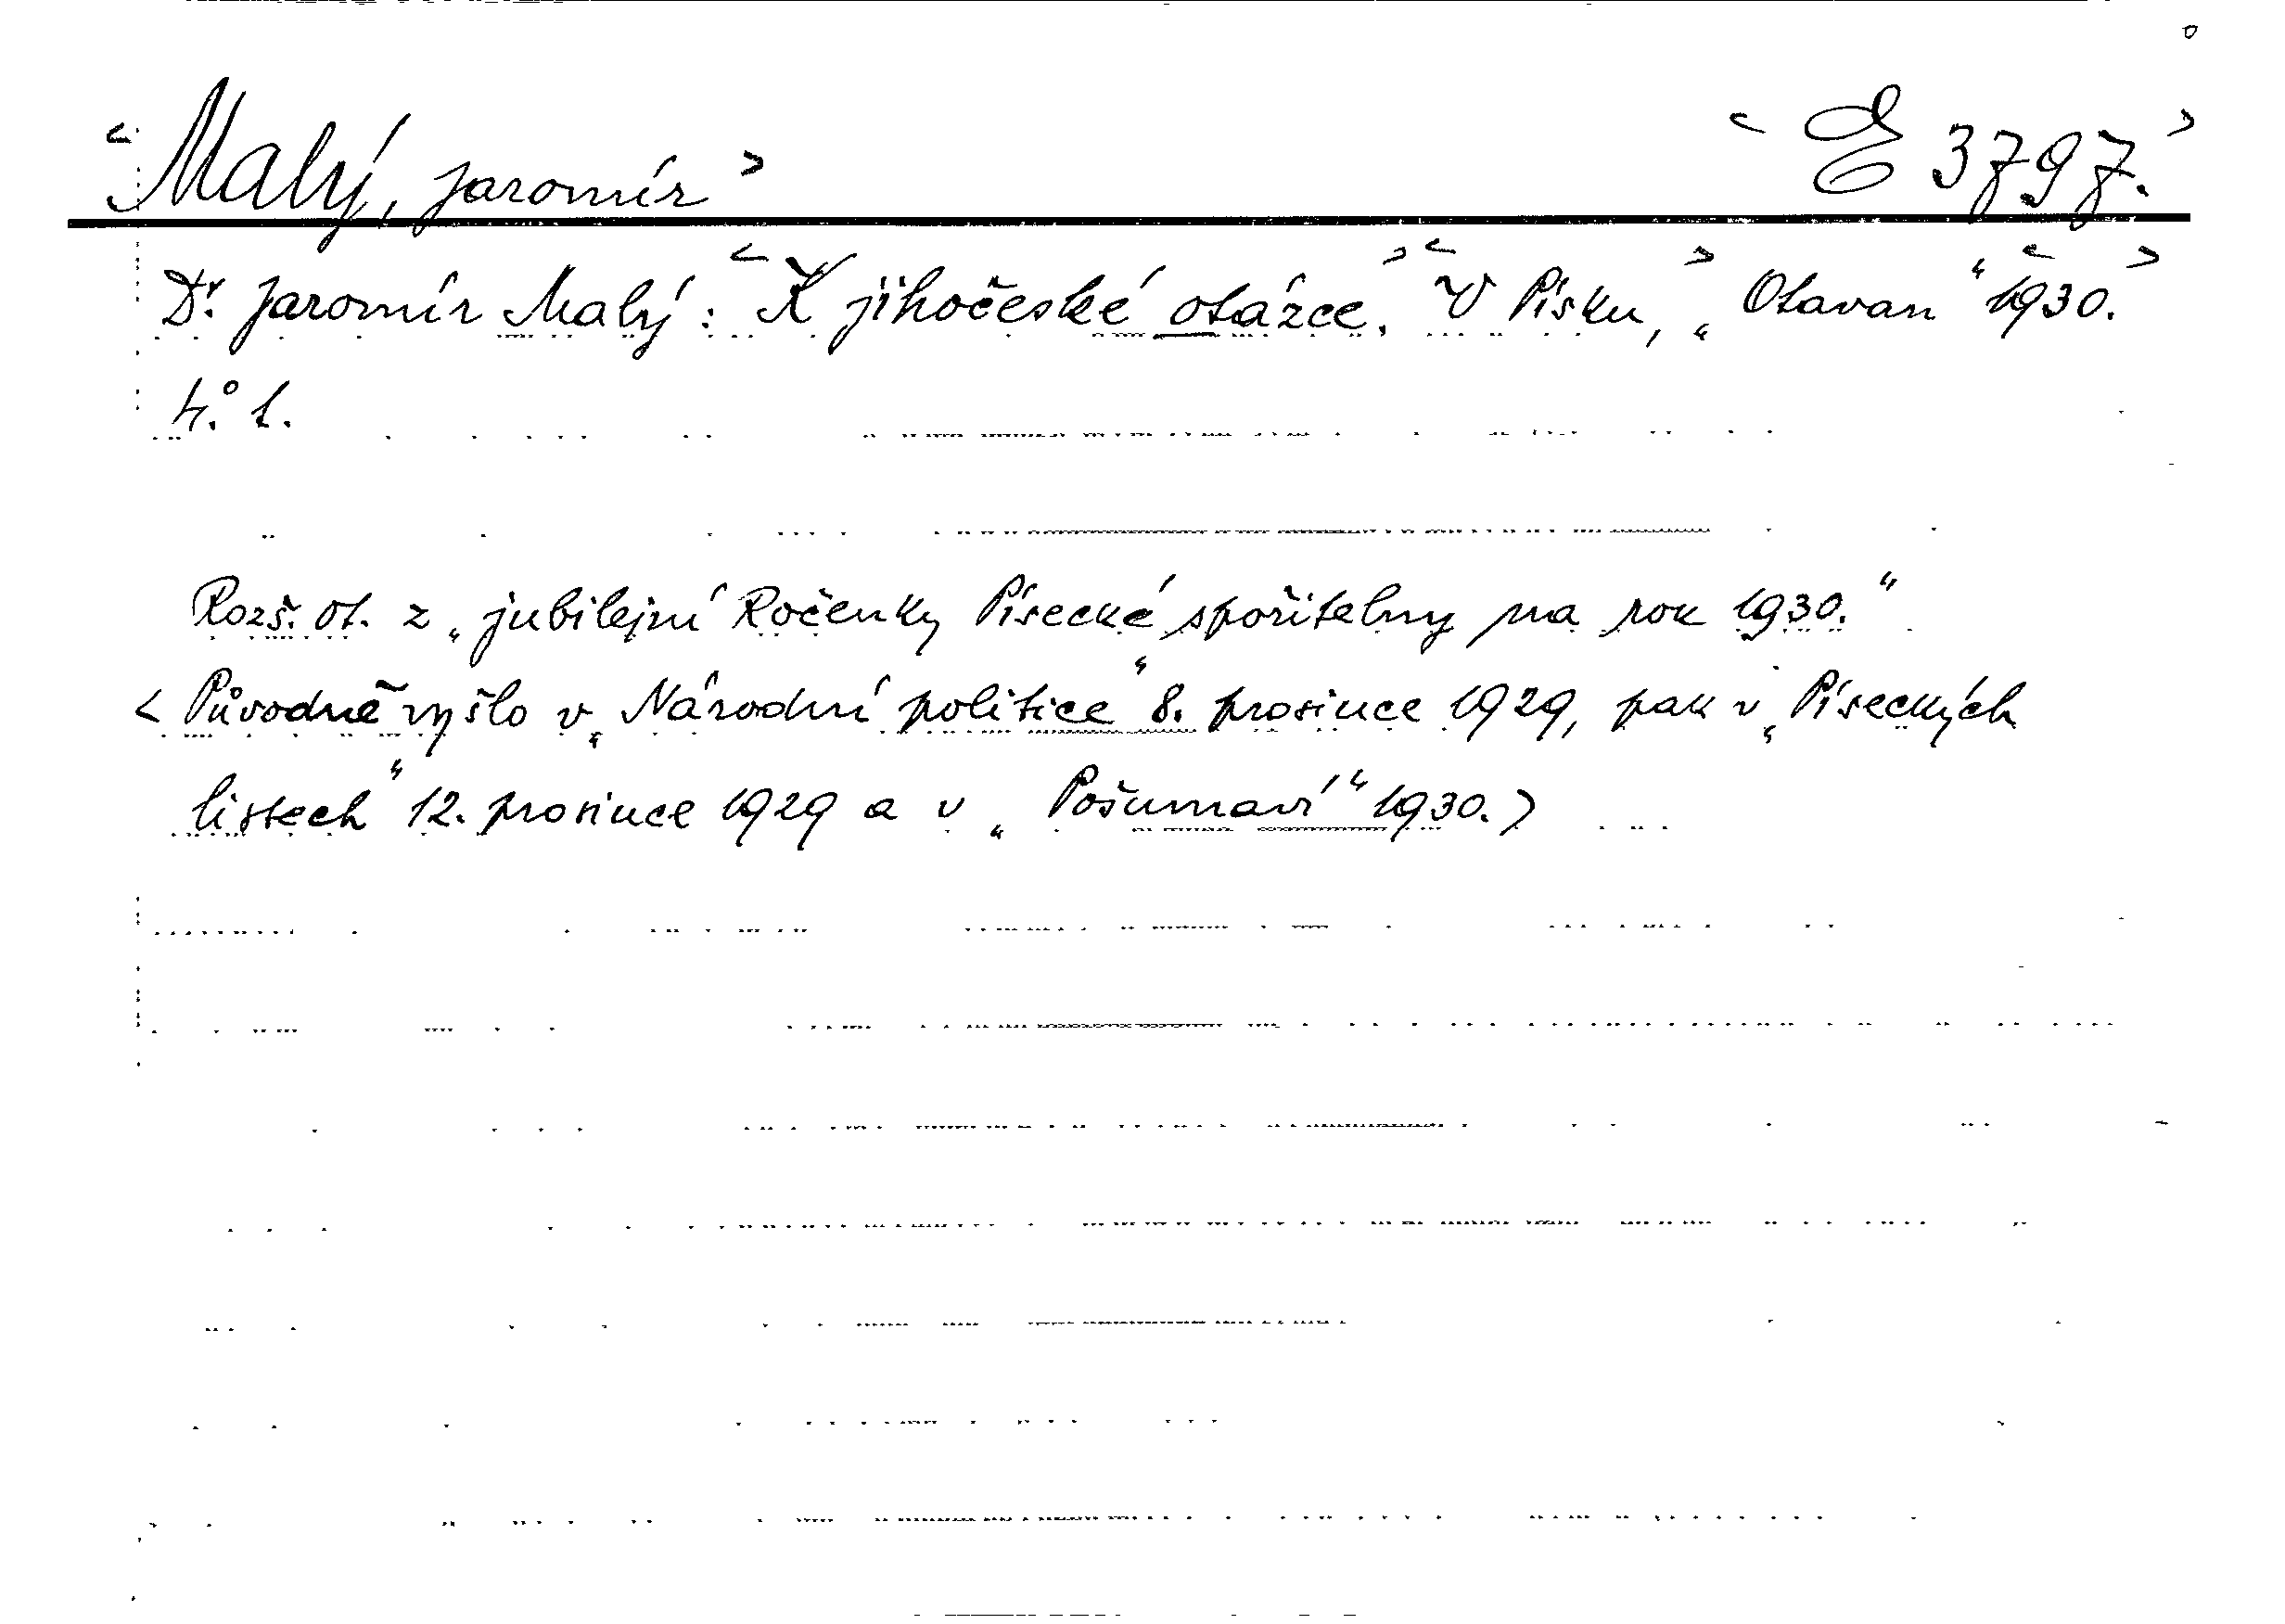 <Malý, Jaromír> <E 3797.>
Dr. Jaromír Malý: <K jihočeské otázce.> <V Písku,> „Otavan“ <1930.>
4° 1.
Rozš. ot. z „jubilejní Ročenky Písecké spořitelny na rok 1930.“
<Původně vyšlo v „Národní politice“ 8. prosince 1929, pak v „Píseckých
listech“ 12. prosince 1929 a v „Pošumaví“ 1930.>